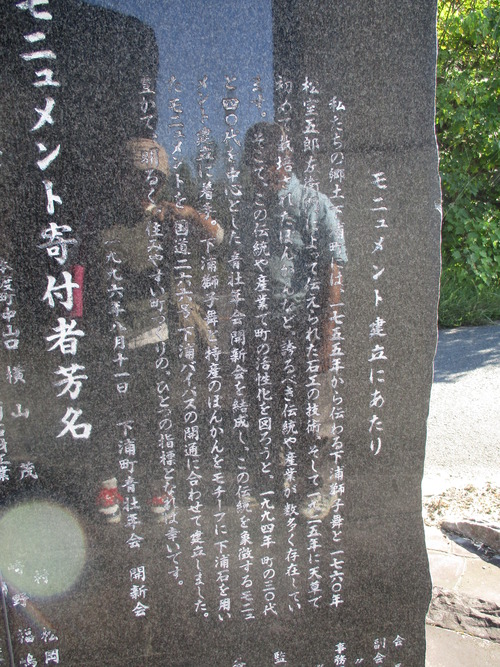 モニュメント建立にあたり
私たちの郷土「下浦町」には一七五五年から伝わる下浦獅子舞と一七六〇年
松室五郎左衛門によって伝えられた石工の技術、そして一九二五年に天草で
初めて栽培されたぽんかんなど、誇るべき伝統や産業が数多く存在してい
ます。そこで、この伝統や産業で町の活性化を図ろうと、一九九四年町の三〇代
と四〇代を中心とした青壮年会開新会を結成し、この伝統を象徴するモニュ
メント建立に着手。下浦獅子舞と特産のぽんかんをモチーフに下浦石を用い
たモニュメントを国道二六六号下浦バイパスの開通に合わせて建立しました。
豊かで、明るく、住みやすい町づくりの、ひとつの指標となれば幸いです。
一九九六年八月十一日 下浦町青壮年会 開新会
モニュメント寄付者芳名
本渡町中山口 横山 茂
村
野
松岡
福嶋
会
副会
〃
事務
監